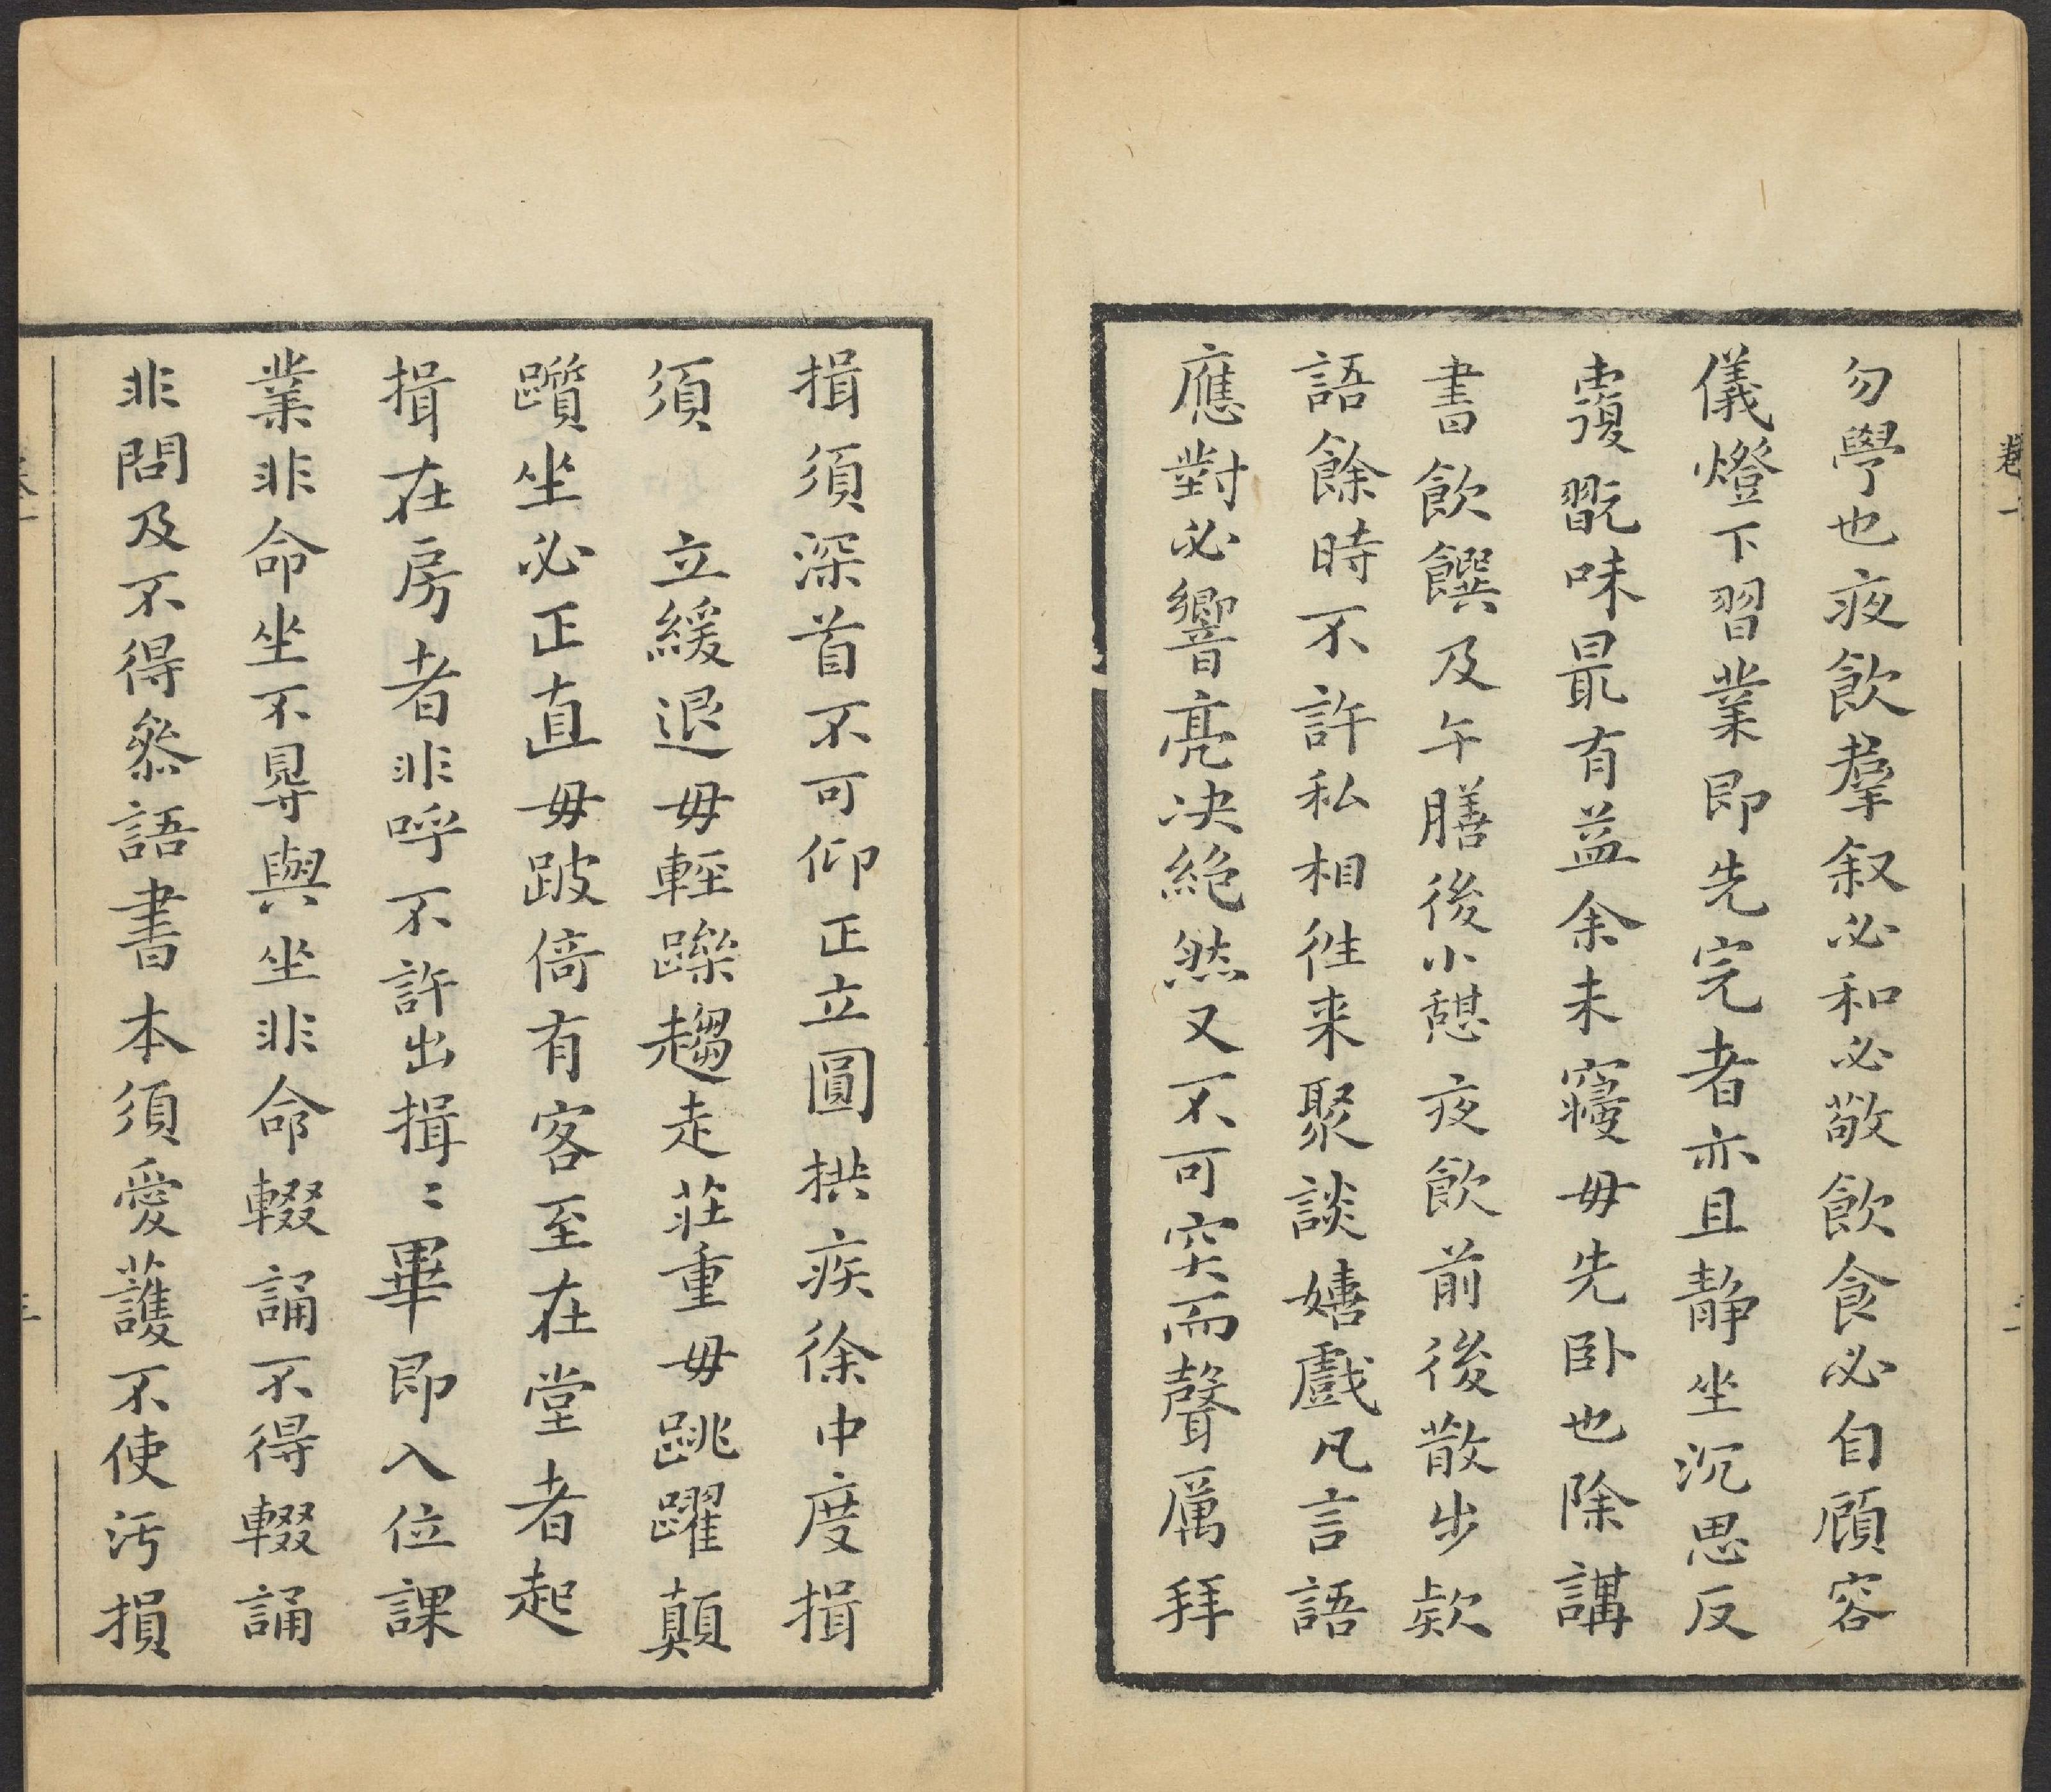 卷一
勿學也夜飲羣叙必和必敬飲食必自顧容
儀燈下習業即先完者亦且静坐沉思反
覆翫味最有益余未寢毋先卧也除講
書飲饌及午膳後小憇夜飲前後散步欵
語餘時不許私相徃来聚談嬉戲凡言語
應對必響亮决絶然又不可突而聲厲拜
揖須深首不可仰正立圓拱疾徐中度揖
須 立緩退毋輕躁趨走莊重毋跳躍顛
躓坐必正直毋跛倚有客至在堂者起
揖在房者非呼不許出揖〻畢即入位課
業非命坐不得與坐非命輟誦不得輟誦
非問及不得叅語書本須愛護不使污損